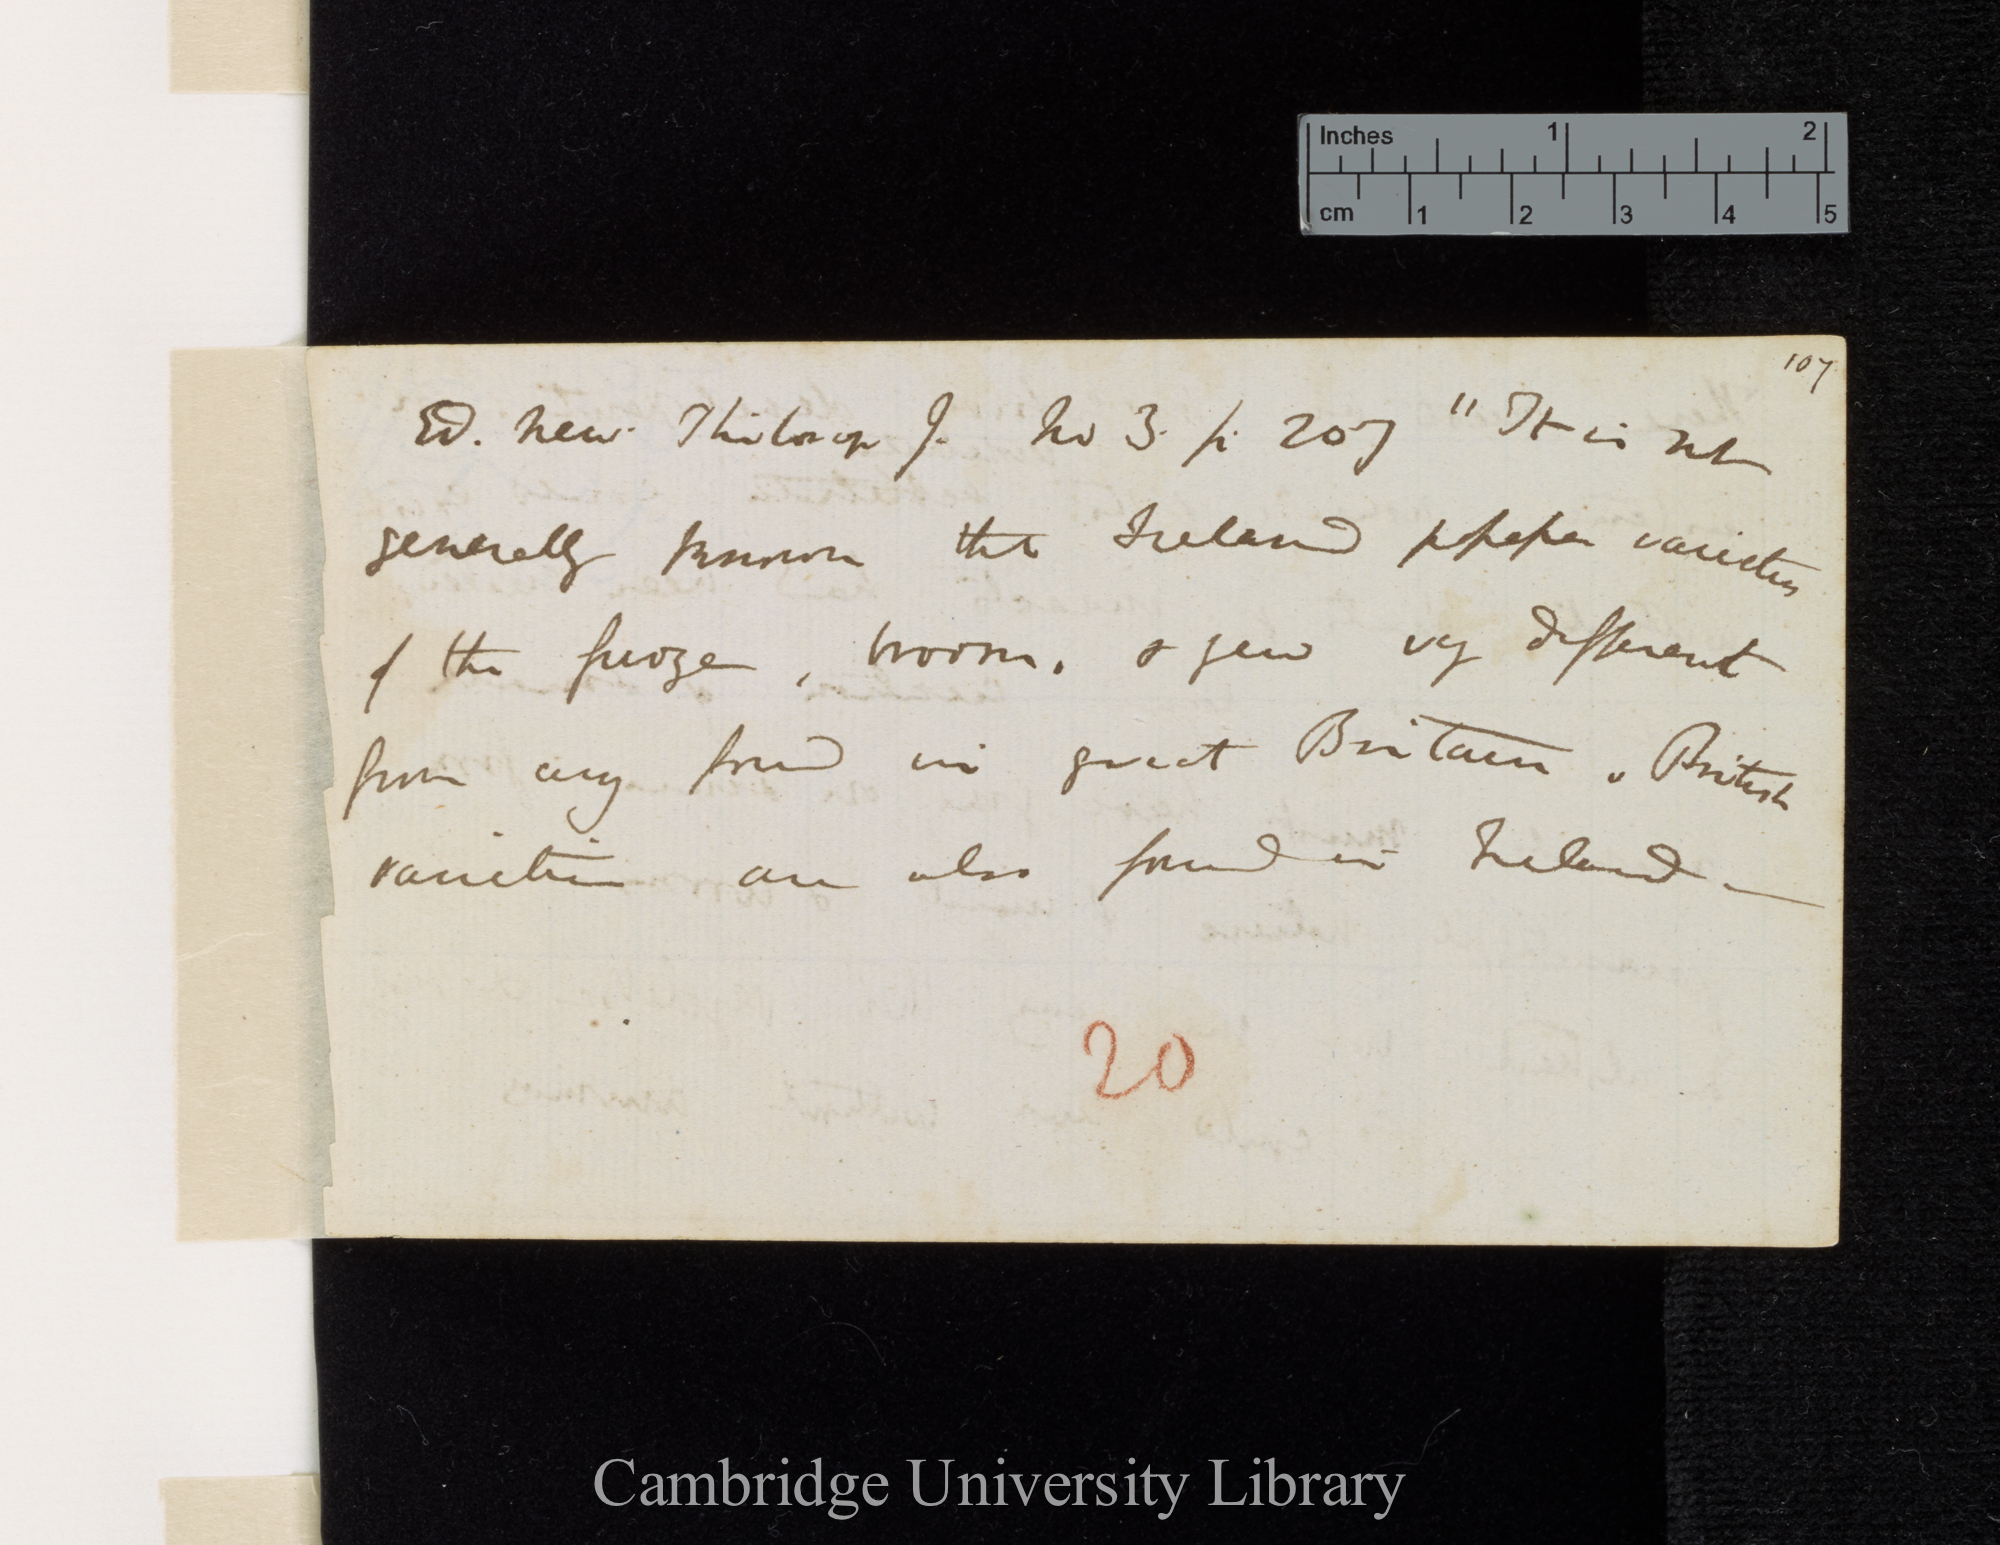 Inches 1 2
cm 1 2 3 4 5
107
Ed. New. Philosop J. No 3. p. 207 "It is not
generally known that Ireland possesses varieties
of the furoze, broom, & yew vy different
from any found in great Britain. British
varieties are also found in Ireland —
20
Cambridge University Library